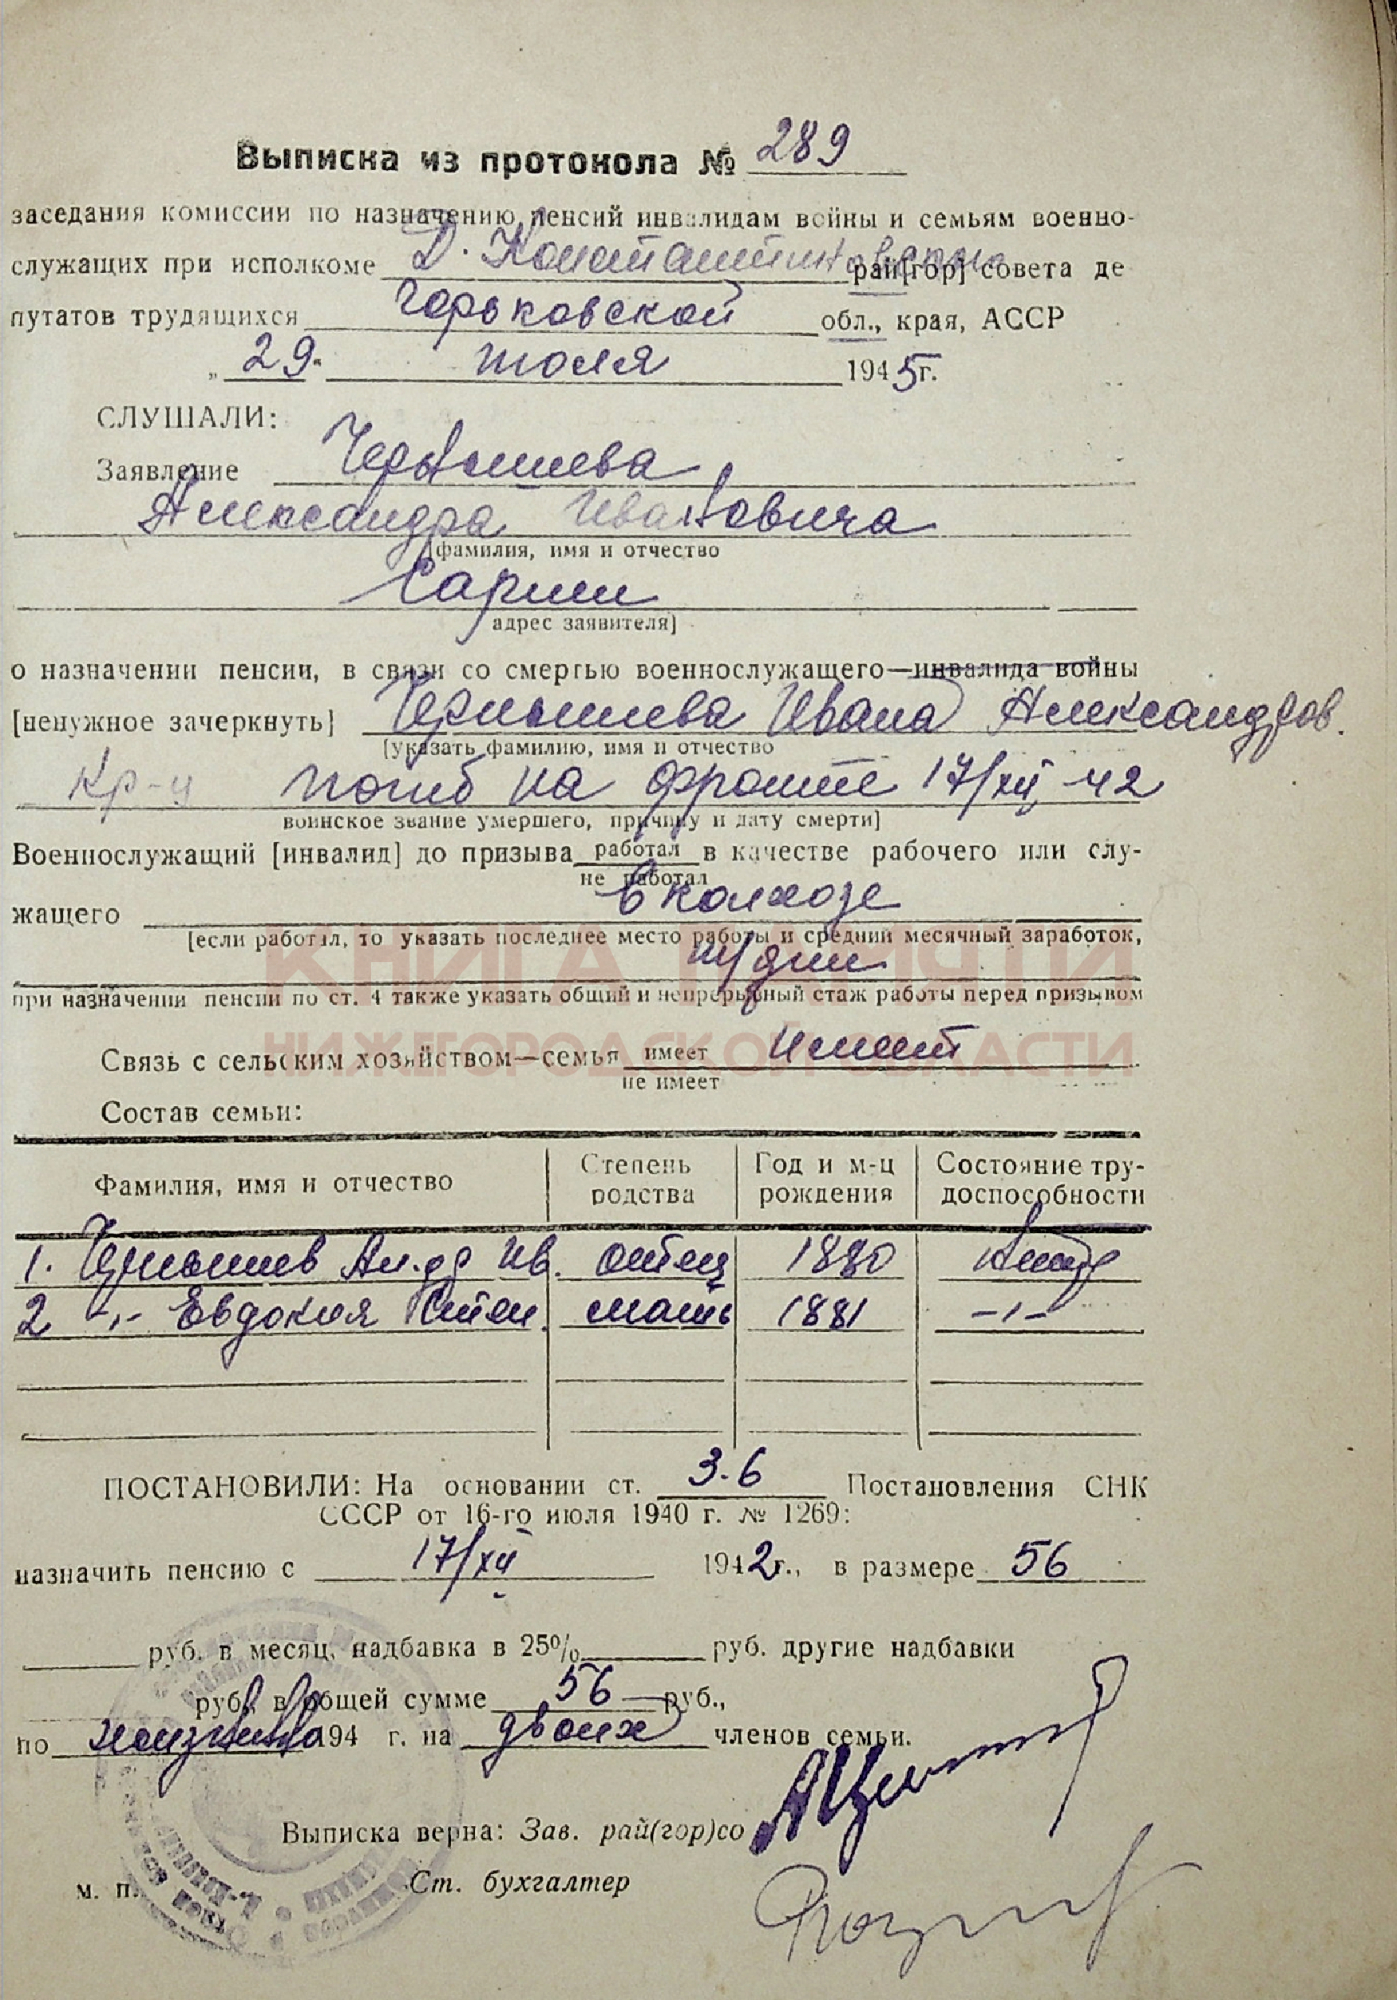 Выписка из протокола № 289
заседания комиссии по назначению пенсий инвалидам войны и семьям военно-
служащих при исполкоме Д. Константиновском рай[гор] совета де
путатов трудящихся Горьковской обл., края, АССР
„ 29 “ июля 1945 г.
СЛУШАЛИ:
Заявление Чернышева
Александра Ивановича
[фамилия, имя и отчество
Сарлеи
адрес заявителя]
о назначении пенсии, в связи со смертью военнослужащего—инвалида войны
[ненужное зачеркнуть] Чернышева Ивана Александров.
[указать фамилию, имя и отчество
Кр-ц погиб на фронте 17/XII 42
воинское звание умершего, причину и дату смерти]
Военнослужащий [инвалид] до призыва работал в качестве рабочего или слу-
не работал
жащего в колхозе
[если работал, то указать последнее место работы и средний месячный заработок,
тр/дни
при назначении пенсии по ст. 4 также указать общий и непрерывный стаж работы перед призывом
КНИГА ПАМЯТИ
НИЖЕГОРОДСКОЙ ОБЛАСТИ
Связь с сельским хозяйством—семья имеет имеет
не имеет
Состав семьи:
Фамилия, имя и отчество Степень родства Год и м-ц рождения Состояние тру-доспособности
1. Чернышев Ал-др Ив. отец 1880
2 -"- Евдокия Степ. мать 1881 -"-
ПОСТАНОВИЛИ: На основании ст. 3.6 Постановления СНК
СССР от 16-го июля 1940 г. № 1269:
назначить пенсию с 17/XII 1942 г., в размере 56
руб. в месяц, надбавка в 25% руб. другие надбавки
руб. в общей сумме 56 руб.,
по 194 г. на двоих членов семьи.
Выписка верна: Зав. рай(гор)со
м. п. Ст. бухгалтер